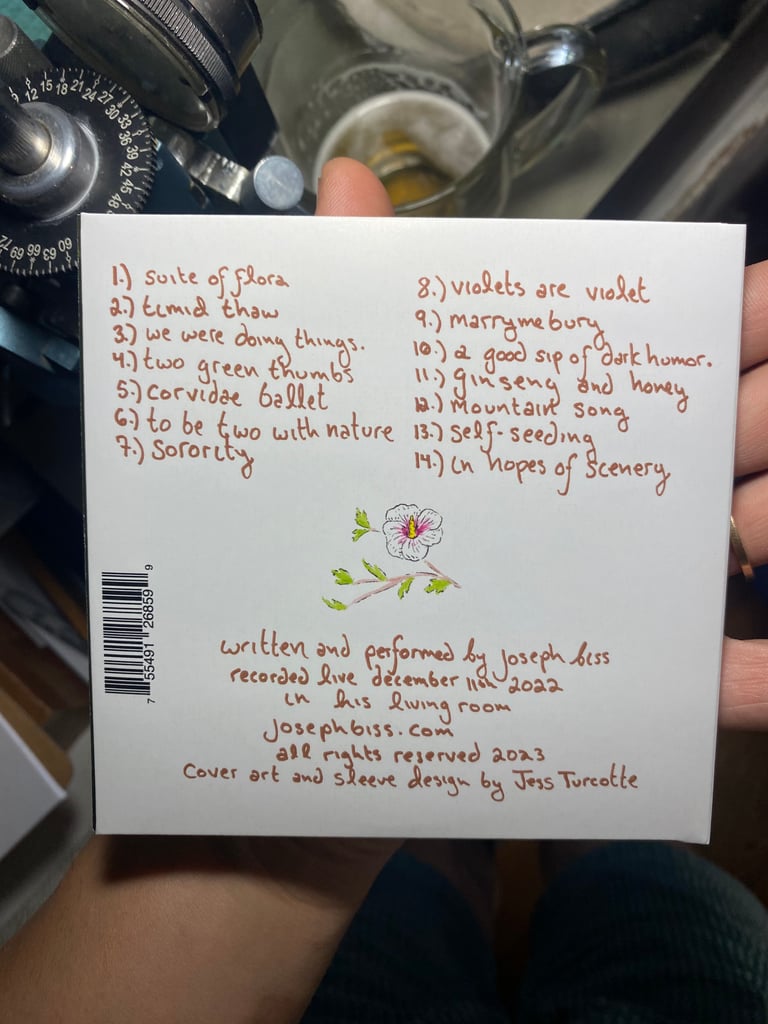 1.) suite of flora
2.) timid thaw
3.) we were doing things.
4.) two green thumbs
5.) corvidae ballet
6.) to be two with nature
7.) sorority
8.) violets are violet
9.) marrymebury
10.) a good sip of dark humor.
11.) ginseng and honey
12.) mountain song
13.) self-seeding
14.) in hopes of scenery
7 55491 26859 9
written and performed by joseph biss
recorded live december 11th 2022
in his living room
josephbiss.com
all rights reserved 2023
Cover art and sleeve design by Jess Turcotte
9 12 15 18 21 24 27 30 33 36 39 42 45 48
60 63 66 69 72